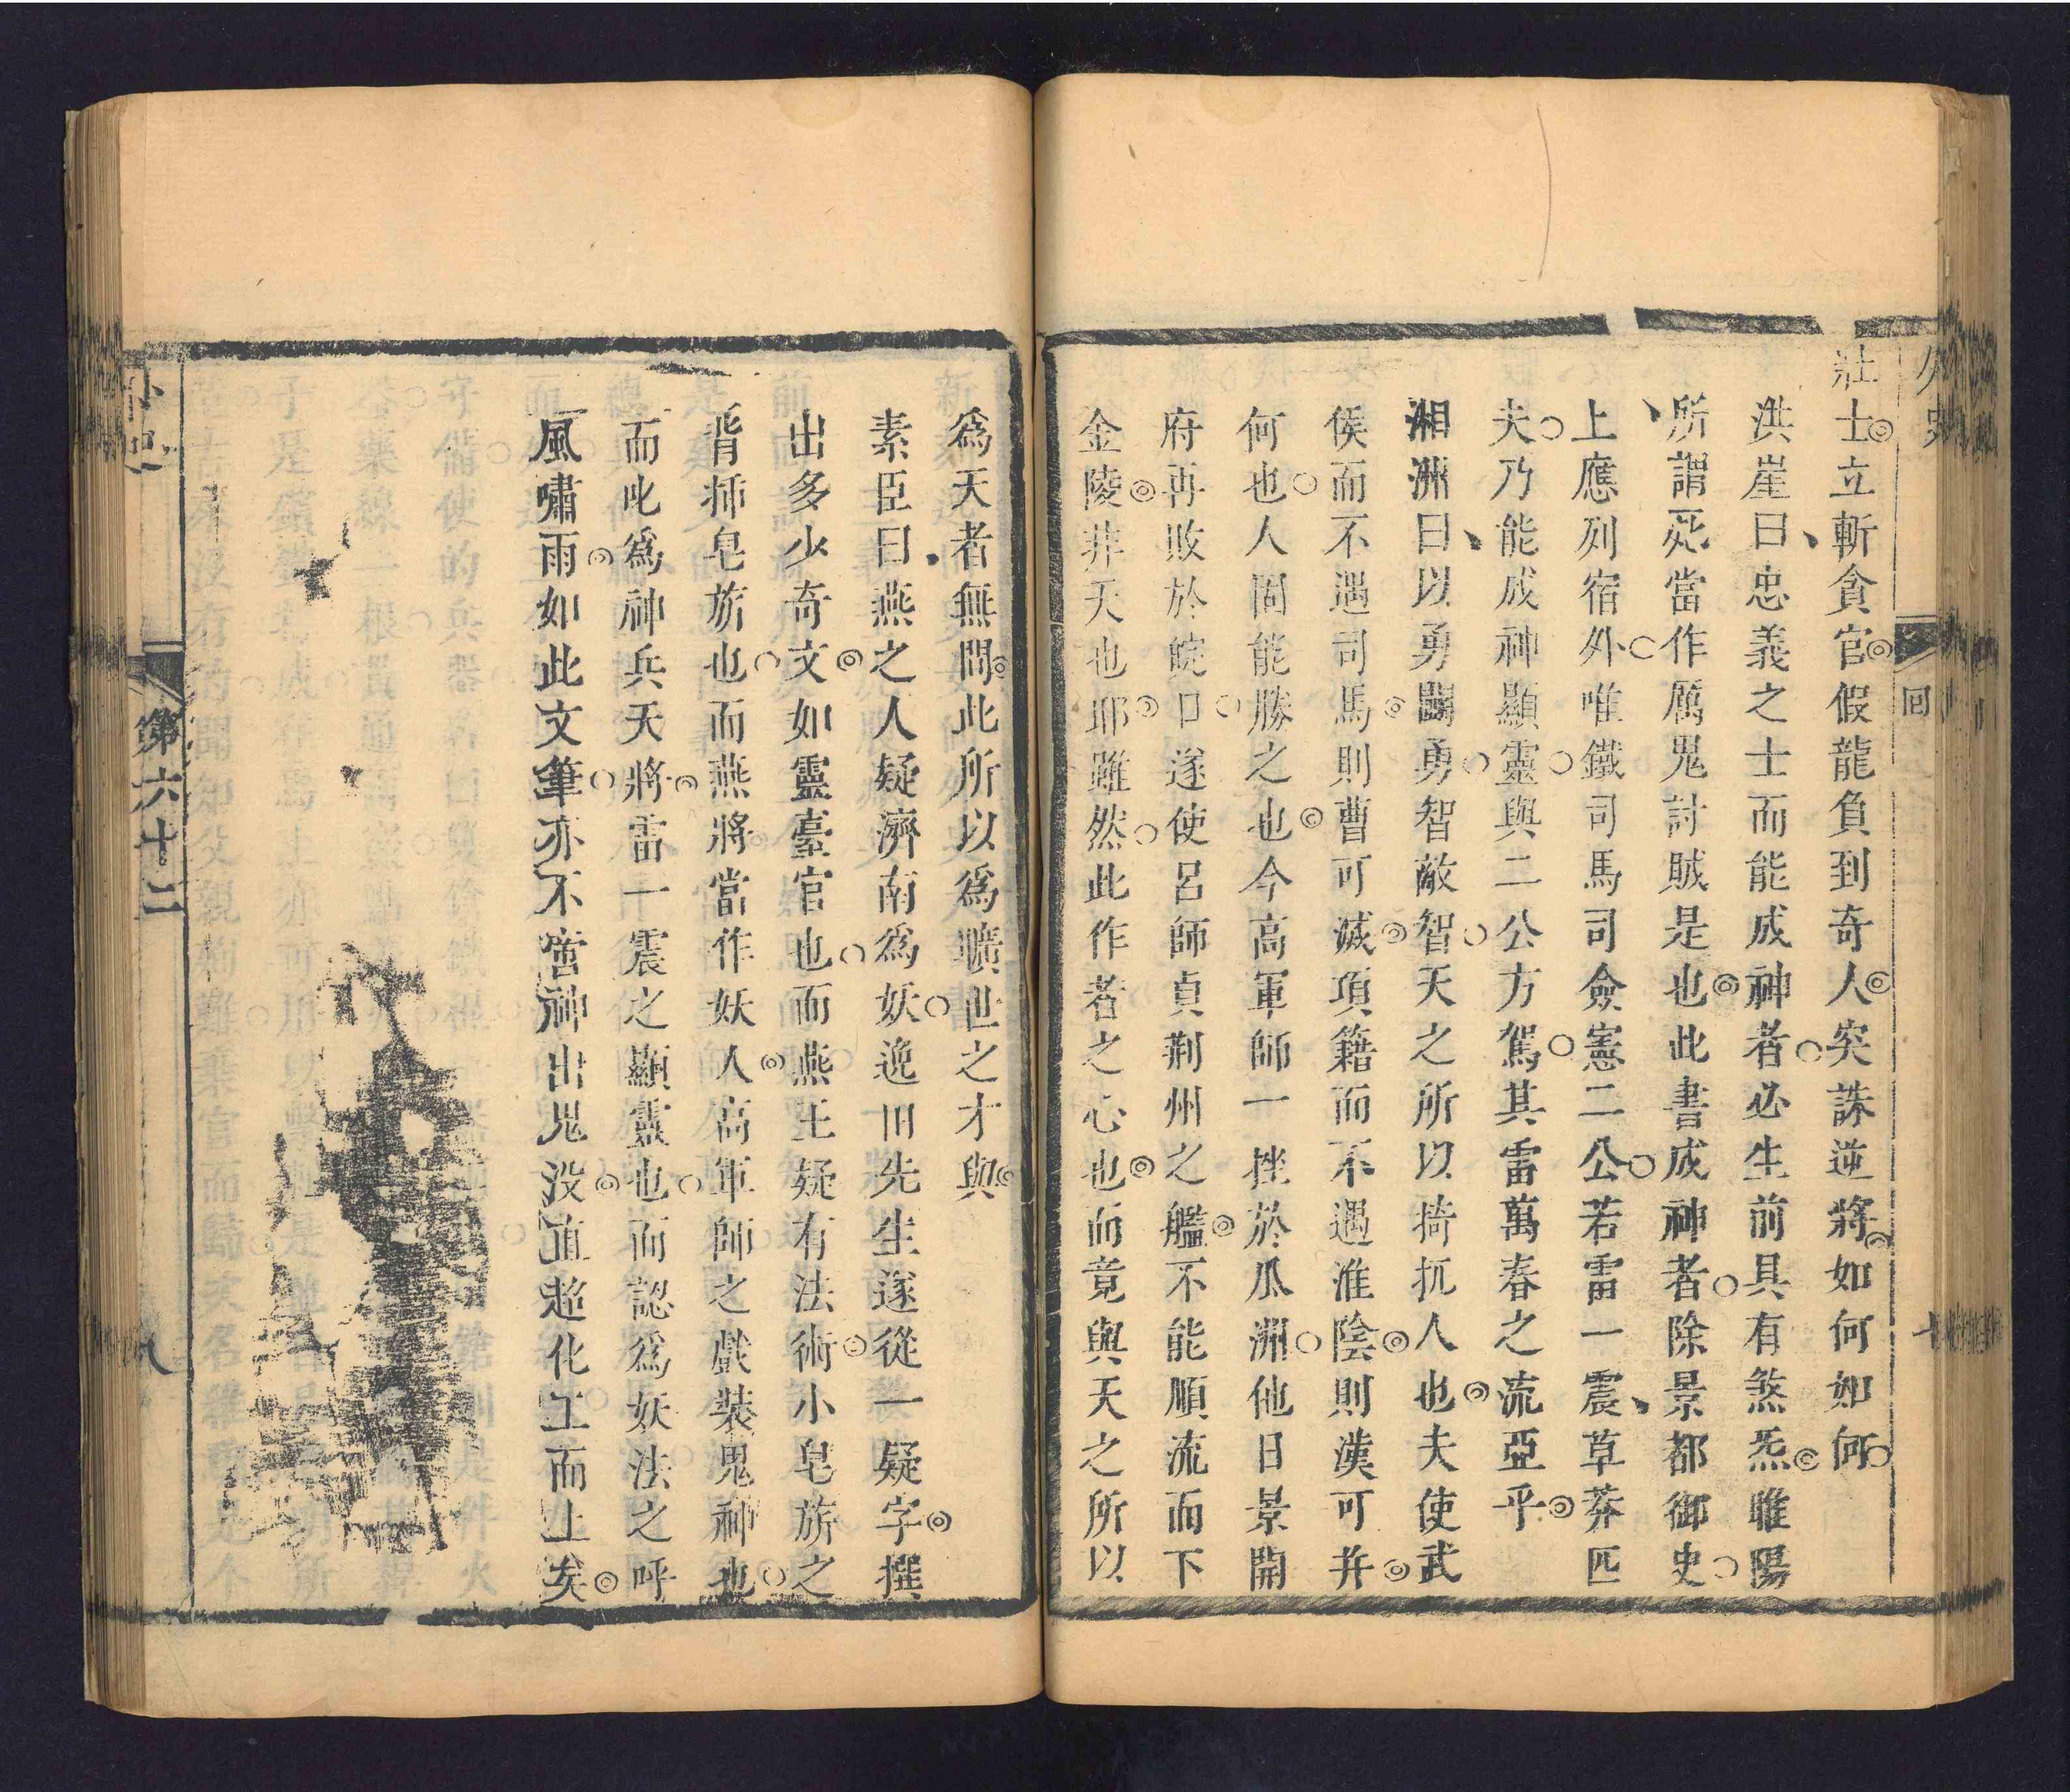 外史
回
壯士立斬貪官假龍負到奇人突誅逆將如何如何
洪崖曰忠義之士而能成神者必生前具有煞炁睢陽
所謂死當作厲鬼討賊是也此書成神者除景都御史
上應列宿外唯鐵司馬司僉憲二公若雷一震草莽匹
夫乃能成神顯靈與二公方駕其雷萬春之流亞乎
湘洲曰以勇鬬勇智敵智天之所以掎抓人也夫使武
侯而不遇司馬則曹可滅項籍而不遇淮陰則漢可并
何也人固能勝之也今高軍師一挫於瓜洲他日景開
府再敗於皖口遂使呂師貞荆州之艦不能順流而下
金陵非天也耶雖然此作者之心也而竟與天之所以
爲天者無間此所以爲曠世之才與
素臣曰燕之人疑濟南爲妖逸田先生遂從一疑字撰
出多少奇文如靈臺官也而燕王疑有法術小皂旂之
背揷皂旂也而燕將當作妖人高軍師之戲裝鬼神也
而此爲神兵天將雷一震之顯靈也而認爲妖法之呼
風嘯雨如此文筆亦不啻神出鬼没直超化工而上矣
外史
第六十二
八